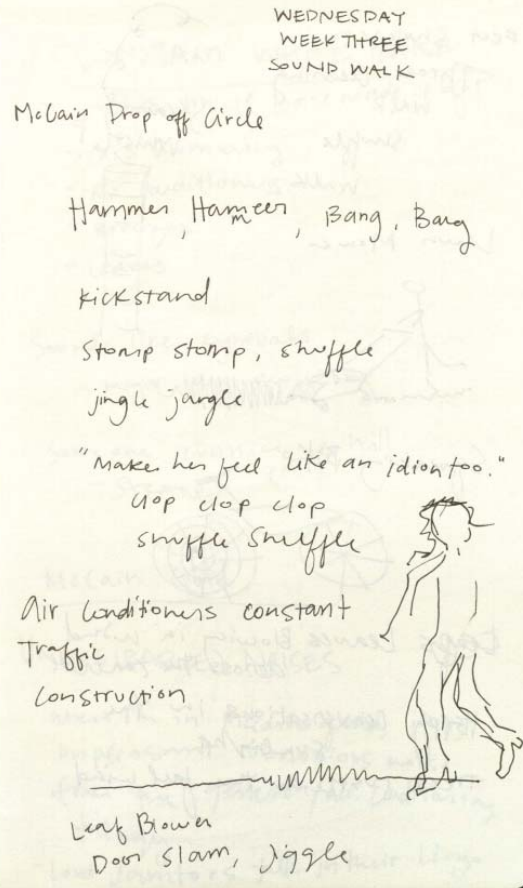 WEDNESDAY
WEEK THREE
SOUND WALK
McCain Drop off Circle
Hammer, Hammer, Bang, Bang
kickstand
Stomp stomp, shuffle
jingle jangle
"Makes her feel like an idiot too."
clop clop clop
shuffle shuffle
Air Conditioners constant
Traffic
Construction
Leaf Blower
Door slam, jiggle